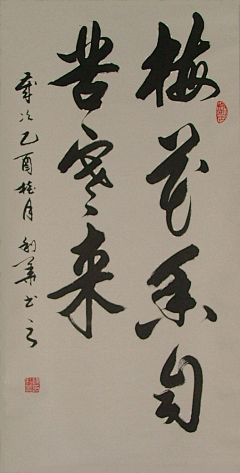 梅花香自
苦寒来
岁次乙酉桂月利华书之